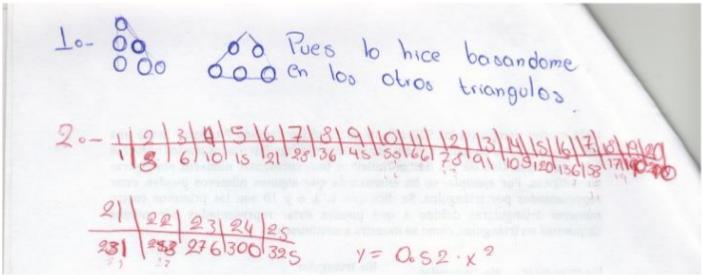 1.- Pues lo hice basandome
en los otros triangulos.
2.- 1 2 3 4 5 6 7 8 9 10 11 12 13 14 15 16 17 18 19 20
1 3 6 10 15 21 28 36 45 55 66 78 91 105 120 136 153 171 190
21 22 23 24 25
231 253 276 300 325
y = 0.52 · x²